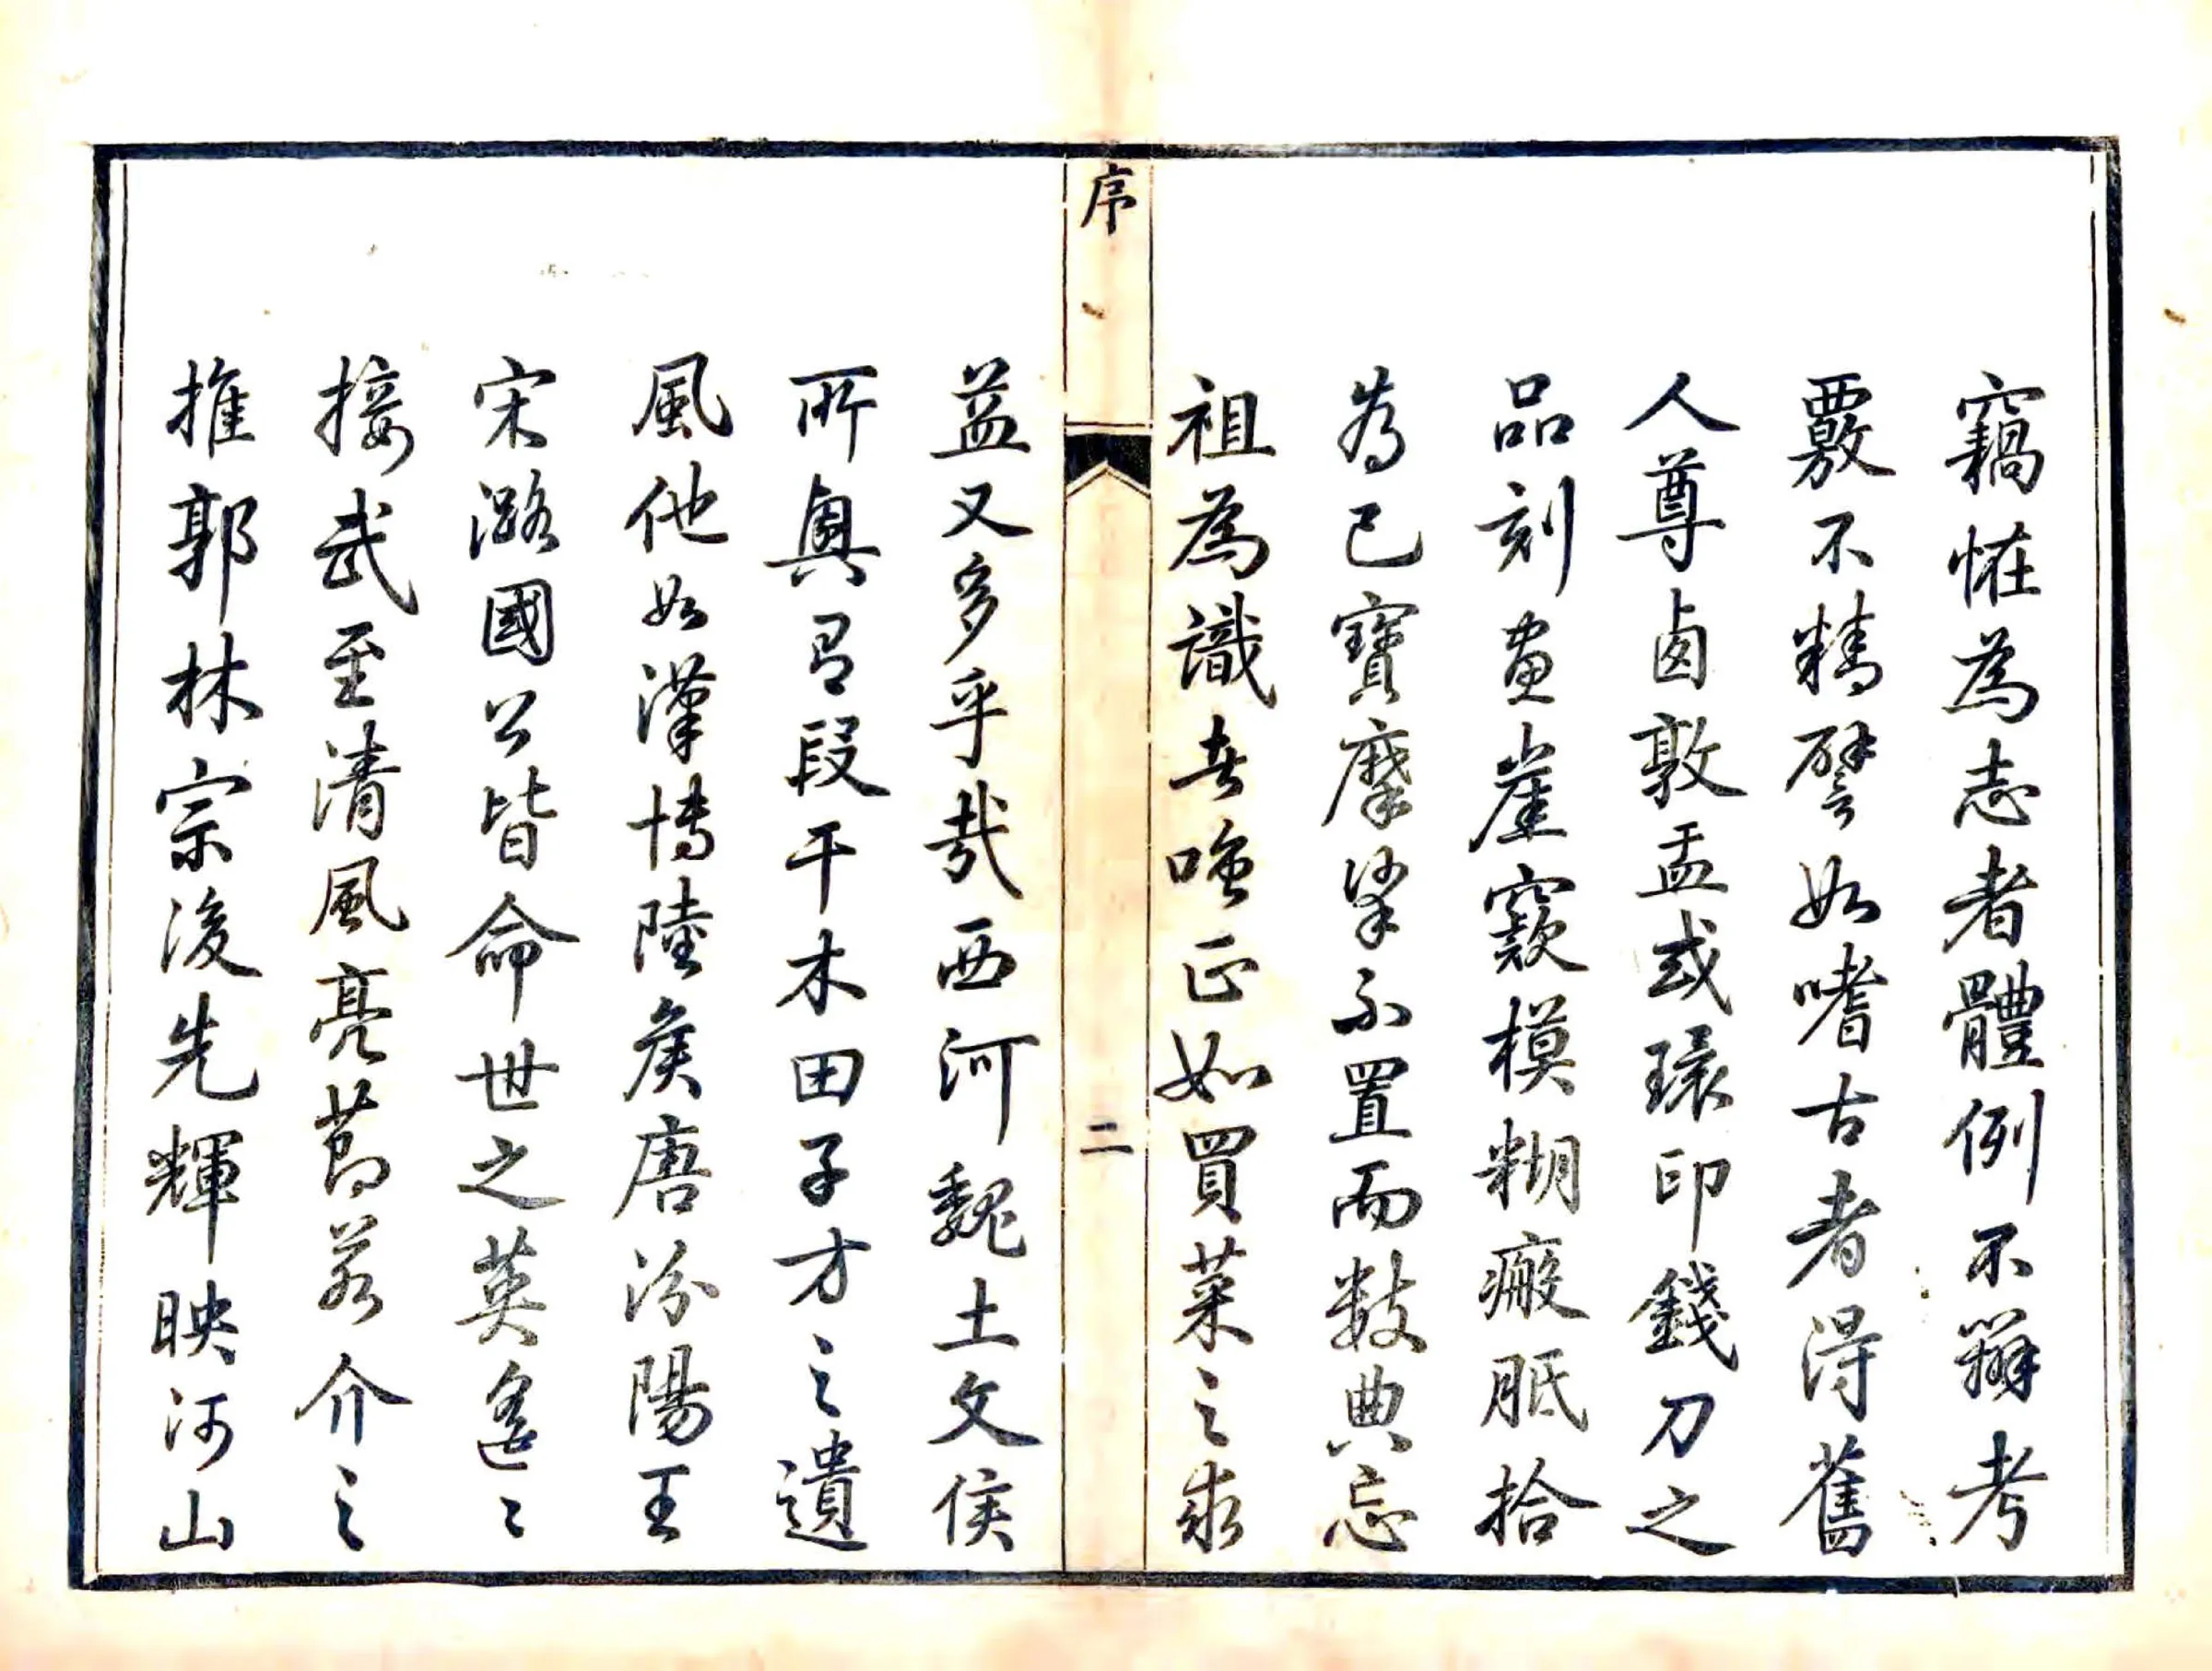 竊恠為志者體例不辨考
覈不精譬如嗜古者得舊
人尊卣敦盂或環印錢刀之
品刻畫崖窾模糊瘢胝拾
為已寶摩挲不置而數典忘
祖為識者嗤正如買菜之求
序
二
益又多乎哉西河魏土文侯
所興有段干木田子方之遺
風他如漢博陸矦唐汾陽王
宋潞國公皆命世之英遙〻
接武至清風亮節若介之
推郭林宗後先輝映河山